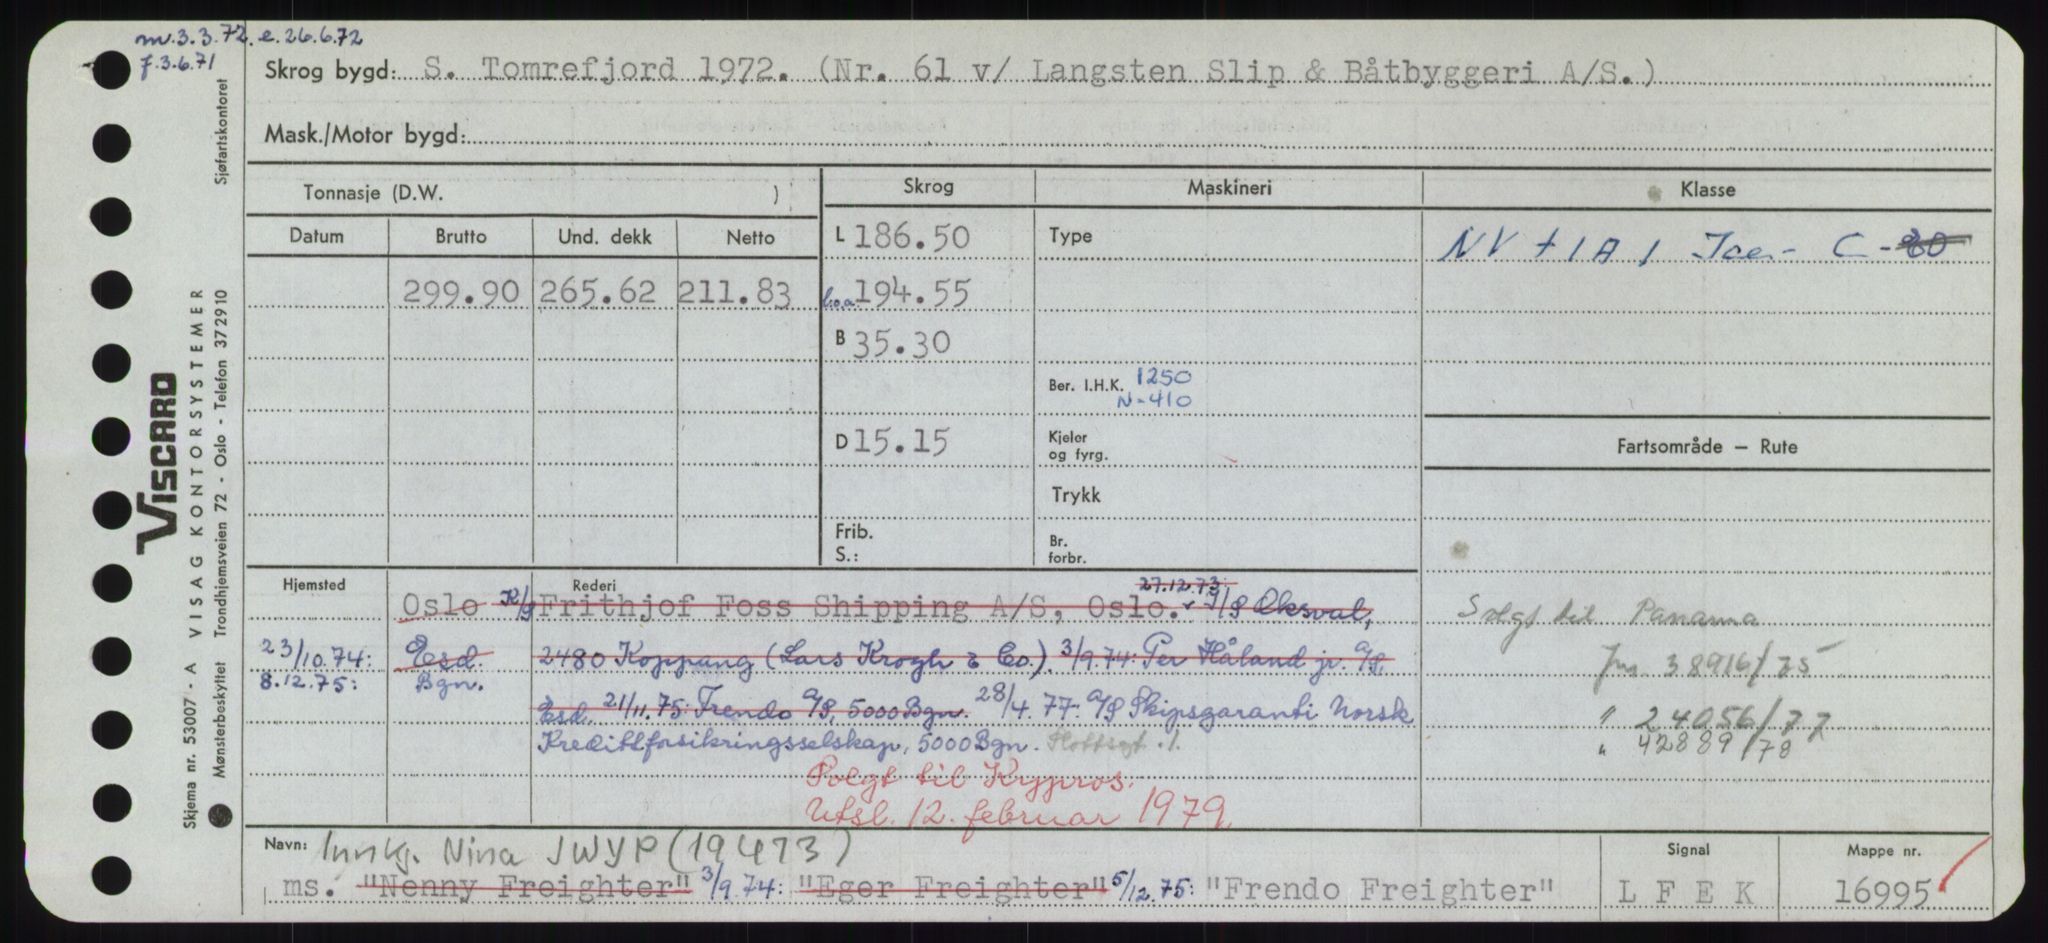 m.3.3.72. e.26.6.72
f.3.6.71
Skrog bygd: S. Tomrefjord 1972. (Nr. 61 v/ Langsten Slip & Båtbyggeri A/S.)
Mask./Motor bygd:
Tonnasje (D.W. )
Skrog
Maskineri
Klasse
Datum Brutto Und. dekk Netto
L 186.50
Type
NV + 1A1 Ice - C - 80
299.90 265.62 211.83
l.o.a. 194.55
B 35.30
Ber. I.H.K. 1250
N-410
D 15.15
Kjeler
og fyrg.
Fartsområde – Rute
Trykk
Frib.
S.:
Br.
forbr.
Hjemsted
Rederi
27.12.73:
Oslo K/S Frithjof Foss Shipping A/S, Oslo. I/S Oksval,
Solgt til Panama
23/10.74: Esd. 2480 Koppang (Lars Krogh & Co.). 3/9.74: Per Håland jr. A/S,
Jnr. 38916/75
8.12.75: Bgn.
Esd. 21/11.75: Frendo A/S, 5000 Bgn. 28/4.77: A/S Skipsgaranti Norsk
" 24056/77
Kredittforsikringsselskap, 5000 Bgn.
" 42889/78
Solgt til Kypros.
Utsl. 12. februar 1979.
Navn: Innkj. Nina JWYP (19473)
Signal
Mappe nr.
ms. "Nenny Freighter" 3/9.74: "Eger Freighter" 5/12.75: "Frendo Freighter"
L F E K
16995
VISCARD
VISAG KONTORSYSTEMER
Skjema nr. 53007 - A
Sjøfartskontoret
Mønsterbeskyttet Trondhjemsveien 72 - Oslo - Telefon 372910